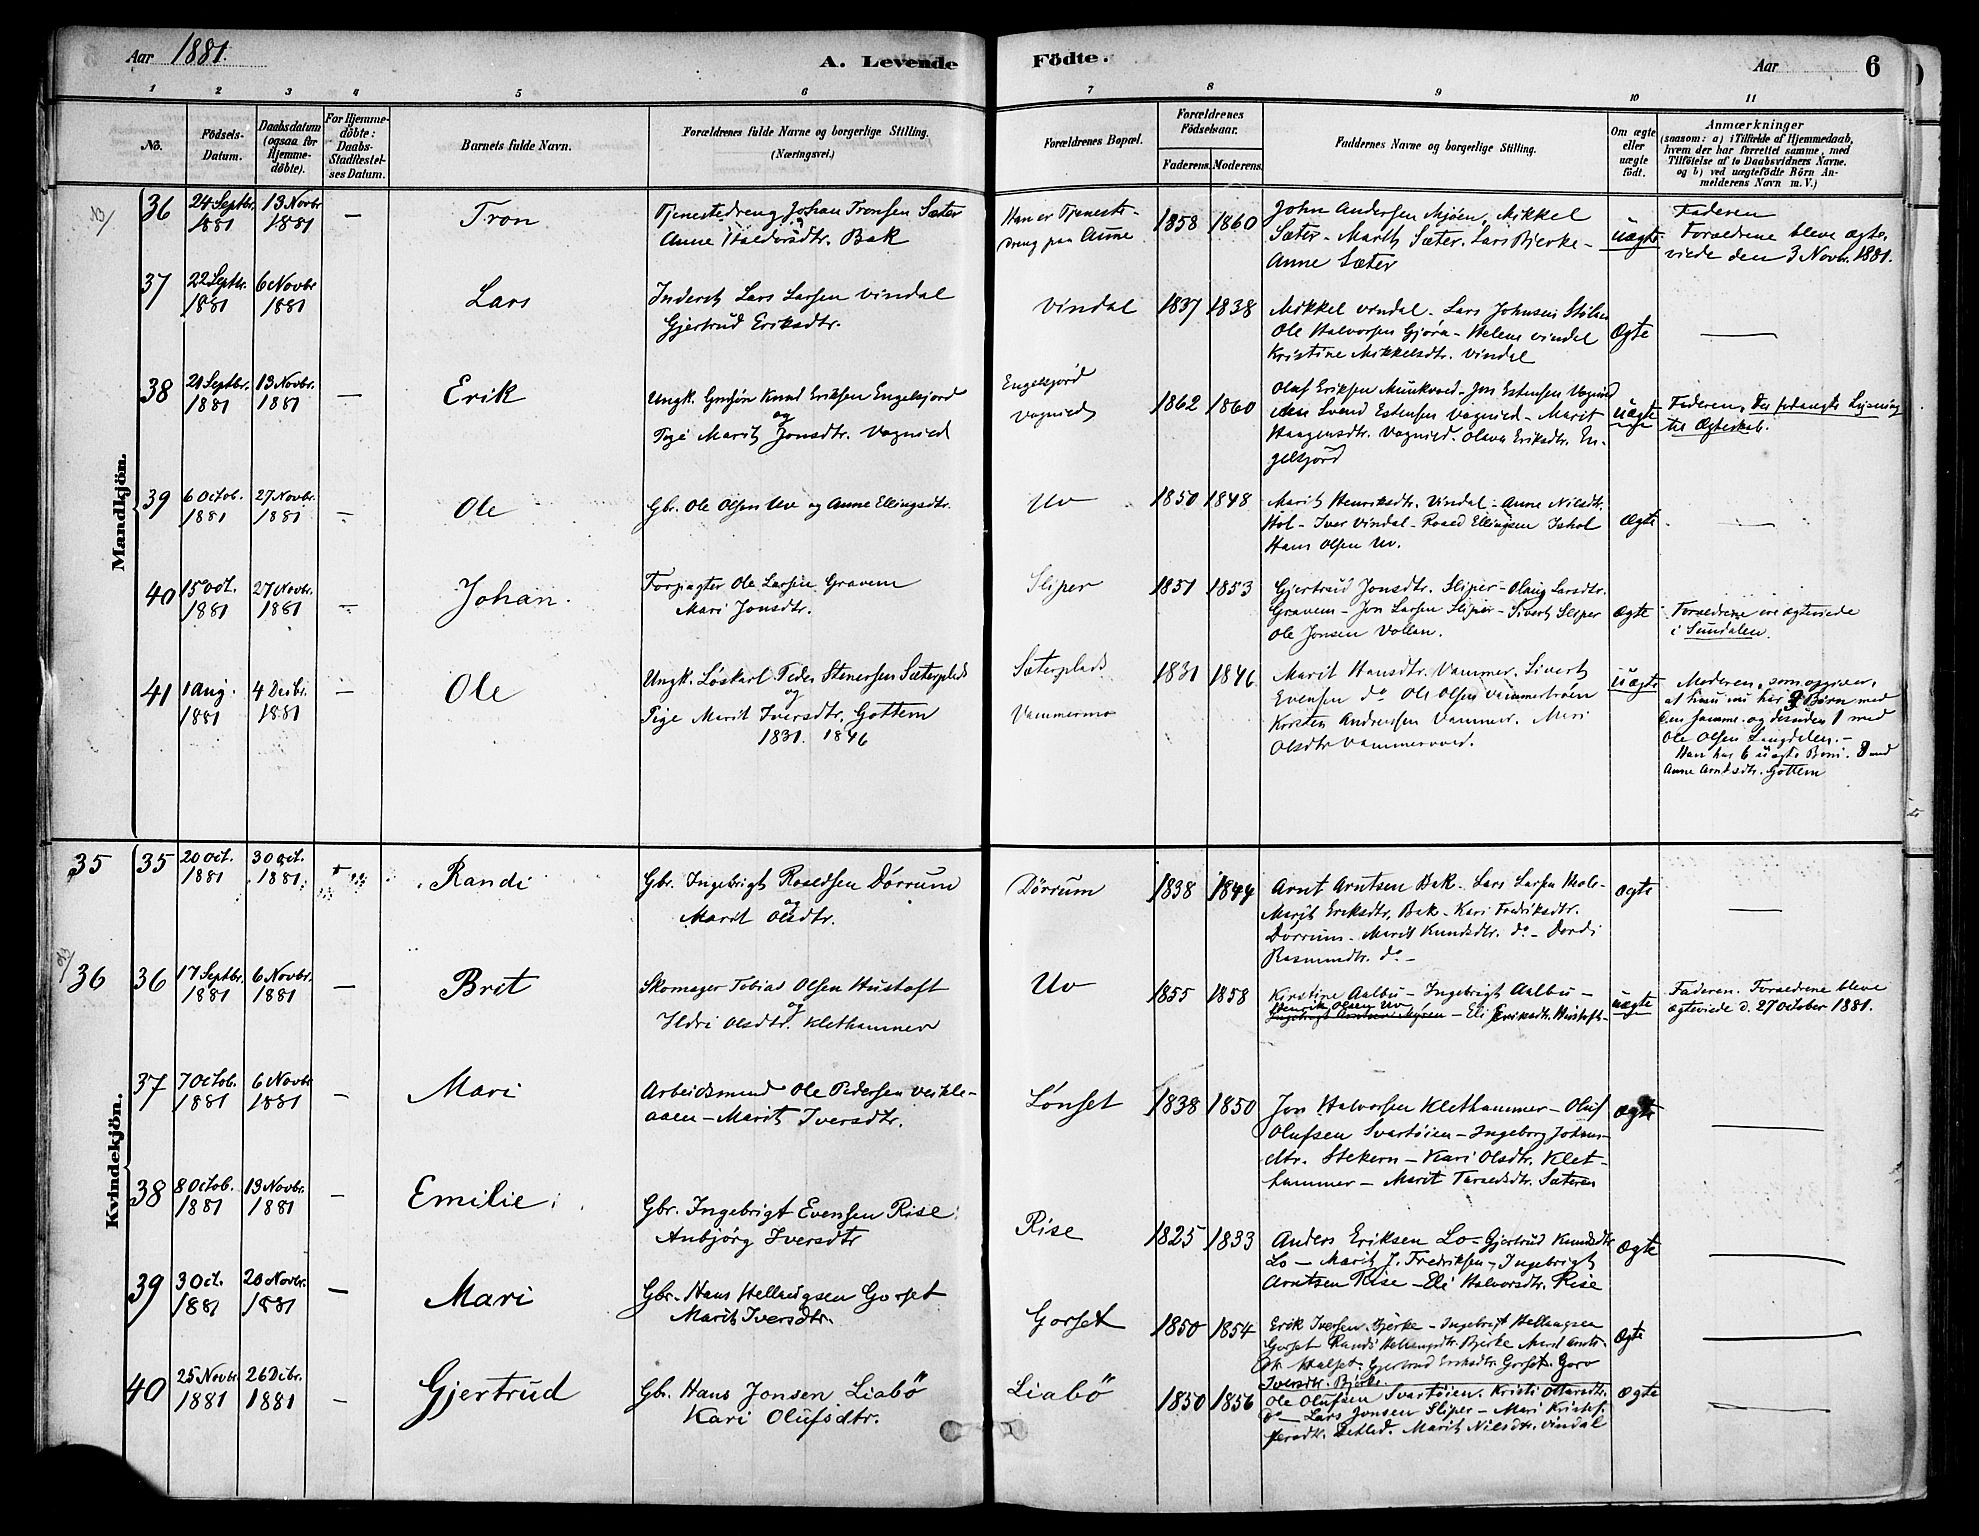 Aar 1881.
A. Levende
Födte.
Aar
6
1 2 3 4 5 6 7 8 9 10 11
No.
Födsels-Datum.
Daabsdatum (ogsaa for Hjemmedöbte).
For Hjemmedöbte: Daabs-Stadfæstelses Datum.
Barnets fulde Navn.
Forældrenes fulde Navne og borgerlige Stilling. (Næringsvei.)
Forældrenes Bopæl.
Forældrenes Födselsaar.
Faderens. Moderens.
Faddernes Navne og borgerlige Stilling.
Om ægte eller uægte födt.
Anmærkninger
(saasom: a) i Tilfælde af Hjemmedaab,
hvem der har forrettet samme, med
Tilföielse af to Daabsvidners Navne.
og b) ved uægtefödte Börn Anmelderens Navn m. V.)
Mandkjön.
36 24 Septbr. 1881 13 Novbr 1881 — Tron
Tjenestedreng Johan Tronsen Sæter
Anne Haldorsdtr. Bak
Han er Tjeneste-
dreng paa Aune
1858 1860
John Andersen Mjøen, Mikkel
Sæter - Marit Sæter. Lars Bjerke -
Anne Sæter
uægte
Faderen
Forældrene bleve ægte-
viede den 3 Novbr. 1881.
37 22 Septbr. 1881 6 Novbr 1881 Lars
Inderst Lars Larsen Vindal
Gjertrud Eriksdtr.
Vindal
1837 1838
Mikkel Vindal - Lars Johnsen Stølen
Ole Halvorsen Gjøra - Helene Vindal
Kristine Mikkelsdtr. Vindal
Ægte —
38 21 Septbr. 1881 13 Novbr. 1881 — Erik
Ungk. Grdsøn Knud Eriksen Engelsjord
og
Pige Marit Jonsdtr. Vognild
Engelsjord
Vognild
1862 1860
Oluf Eriksen Munkvoed - Jon Estensen Vognild
Svend Estensen Vognild - Marit
Haagensdtr. Vognild. Olava Eriksdtr. En-
gelsjord
uægte
Faderen. Der forlangtes Lysning
til Ægteskab.
39 6 Octob. 1881 27 Novbr. 1881 — Ole
Gbr. Ole Olsen Uv og Anne Ellingsdtr.
Uv
1850 1848
Marit Henriksdtr. Vindal - Anne Nilsdtr.
Hol - Iver Vindal - Roald Ellingsen Ishol
Hans Olsen Uv.
Ægte —
40 15 Oct. 1881 27 Novbr. 1881 — Johan.
Forpagter Ole Larsen Gravem
Mari Jonsdtr.
Sliper
1851 1853
Gjertrud Jonsdtr. Sliper - Olaug Larsdtr.
Gravem - Jon Larsen Sliper - Sivert Sliper
Ole Jonsen Vollan.
ægte
Forældrene ere ægteviede
i Sundalen.
41 1 Aug. 1881 4 Debr. 1881 — Ole
Ungk. Løskarl Peder Stenersen Sæterplads
og
Pige Marit Iversdtr. Gottem
1831. 1846
Sæterplads
Vammermo
1831 1846
Marit Hansdtr. Vammer. Sivert
Evensen do Ole Olsen Vammerbroen
Karsten Andreassen Vammer. Mari
Olsdtr Vammervold.
uægte
Moderen, som opgiver,
at hun nu har 3 Børn med
den samme og desuden 1 med
Ole Olsen Langdalen. -
Han har 6 uægte Børn. 3 med
Anne Arntsdtr. Gottem
Kvindekjön.
35 35 20 Oct. 1881 30 Oct. 1881 Randi
Gbr. Ingebrigt Roaldsen Dørrum
og
Marit Olsdtr.
Dørrum
1838 1844
Arnt Arntsen Bak - Lars Larsen Hole -
Marit Eriksdtr. Bak - Kari Fredriksdtr.
Dørrum - Marit Knudsdtr. do - Dordi
Rasmusdtr. do -
Ægte —
36 36 17 Septbr. 1881 6 Novbr. 1881 — Brit
Skomager Tobias Olsen Hustoft
og
Ildri Olsdtr. Klethammer
Uv
1855 1858
Kirstine Aalbu - Ingebrigt Aalbu -
Henrik Olsen Uv
Ingebrigt Arntsen Myren - Eli Eriksdtr. Hustoft -
uægte
Faderen. Forældrene bleve
ægteviede d. 27 October 1881.
37 7 Octob. 1881 6 Novbr 1881 — Mari
Arbeidsmand Ole Pedersen Veikle-
aaen - Marit Iversdtr.
Lønset
1838 1850
Jon Halvorsen Klethammer - Oluf
Olufsen Svartøien - Ingeborg Johns-
dtr. Stekern - Kari Olsdtr. Klet-
hammer - Marit Taraldsdtr. Sæteren
Ægte —
38 8 Octob. 1881 13 Novbr. 1881 — Emilie
Gbr. Ingebrigt Evensen Rise
Anbjørg Iversdtr
Rise
1825 1833
Anders Eriksen Lo - Gjertrud Knudsdtr
Lo - Marit J. Fredriksen - Ingebrigt
Arntsen Rise - Eli Halvorsdtr. Rise
Ægte —
39 3 Oct. 1881 20 Novbr. 1881 — Mari
Gbr. Hans Hellaugsen Gorset
Marit Iversdtr.
Gorset
1850 1854
Erik Iversen Bjerke - Ingebrigt Hellaugsen
Gorset Randi Hellaugsdtr. Bjerke Marit Arnts-
dtr. Halset. Gjertrud Eriksdtr Gorset. Goro
Iversdtr. Bjerke.
Ægte —
40 25 Novbr 1881 26 Dbr. 1881 — Gjertrud
Gbr. Hans Jonsen Liabø
Kari Olufsdtr.
Liabö
1850 1856
Ole Olufsen Svartøien. Kristi Ottarsdtr.
do - Lars Jonsen Sliper - Mari Kristof-
fersdtr. Detled. Marit Nilsdtr. Vindal
Ægte —